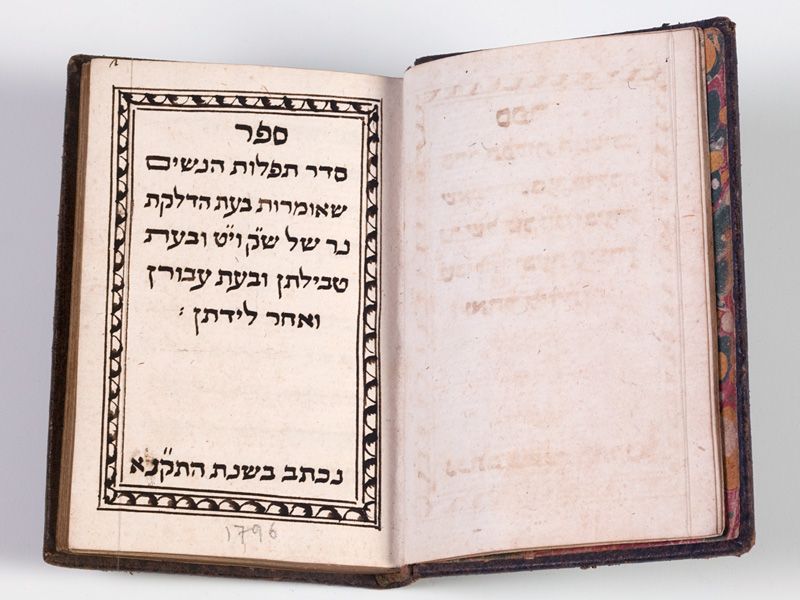 ספר
סדר תפלות הנשים
שאומרות בעת הדלקת
נר של ש"ק וי"ט ובעת
טבילתן ובעת עבורן
ואחר לידתן :
נכתב בשנת התק"נא
1796